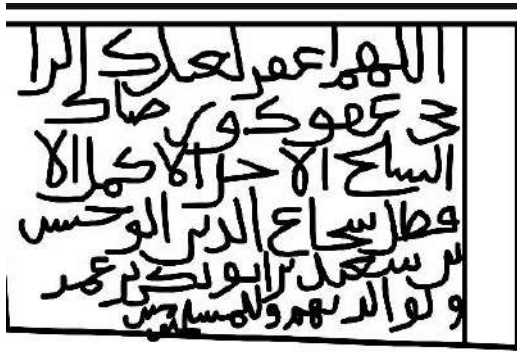 اللهم اغفر لعبدك الرا
جي عفوك ورضاك
الشيخ الاجل الاكمل الا
فضل شجاع الدين ابو حسن
بن سعيد بن ابو بكر بن عمر
ولوالديهم وللمسلمين